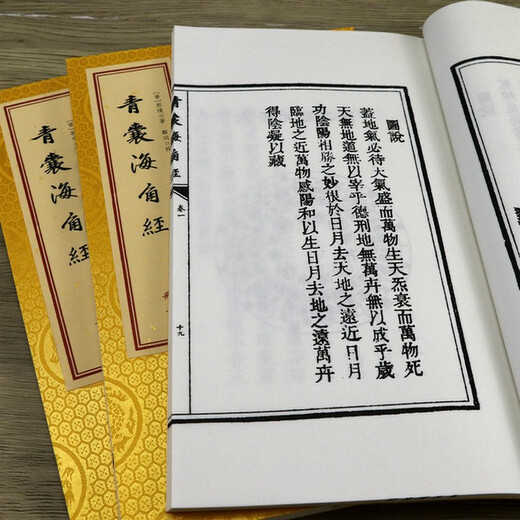 圖說
蓋地氣必待天氣盛而萬物生天炁衰而萬物死
天無地道無以宰乎德刑地無萬卉無以成乎歲
功陰陽相勝之妙根於日月去天地之遠近日月
臨地之近萬物感陽和以生日月去地之遠萬卉
得陰凝以藏
青囊海角經
卷一
十九
青囊海角經
[晉]郭璞 著 鄭同 校
青囊海角經